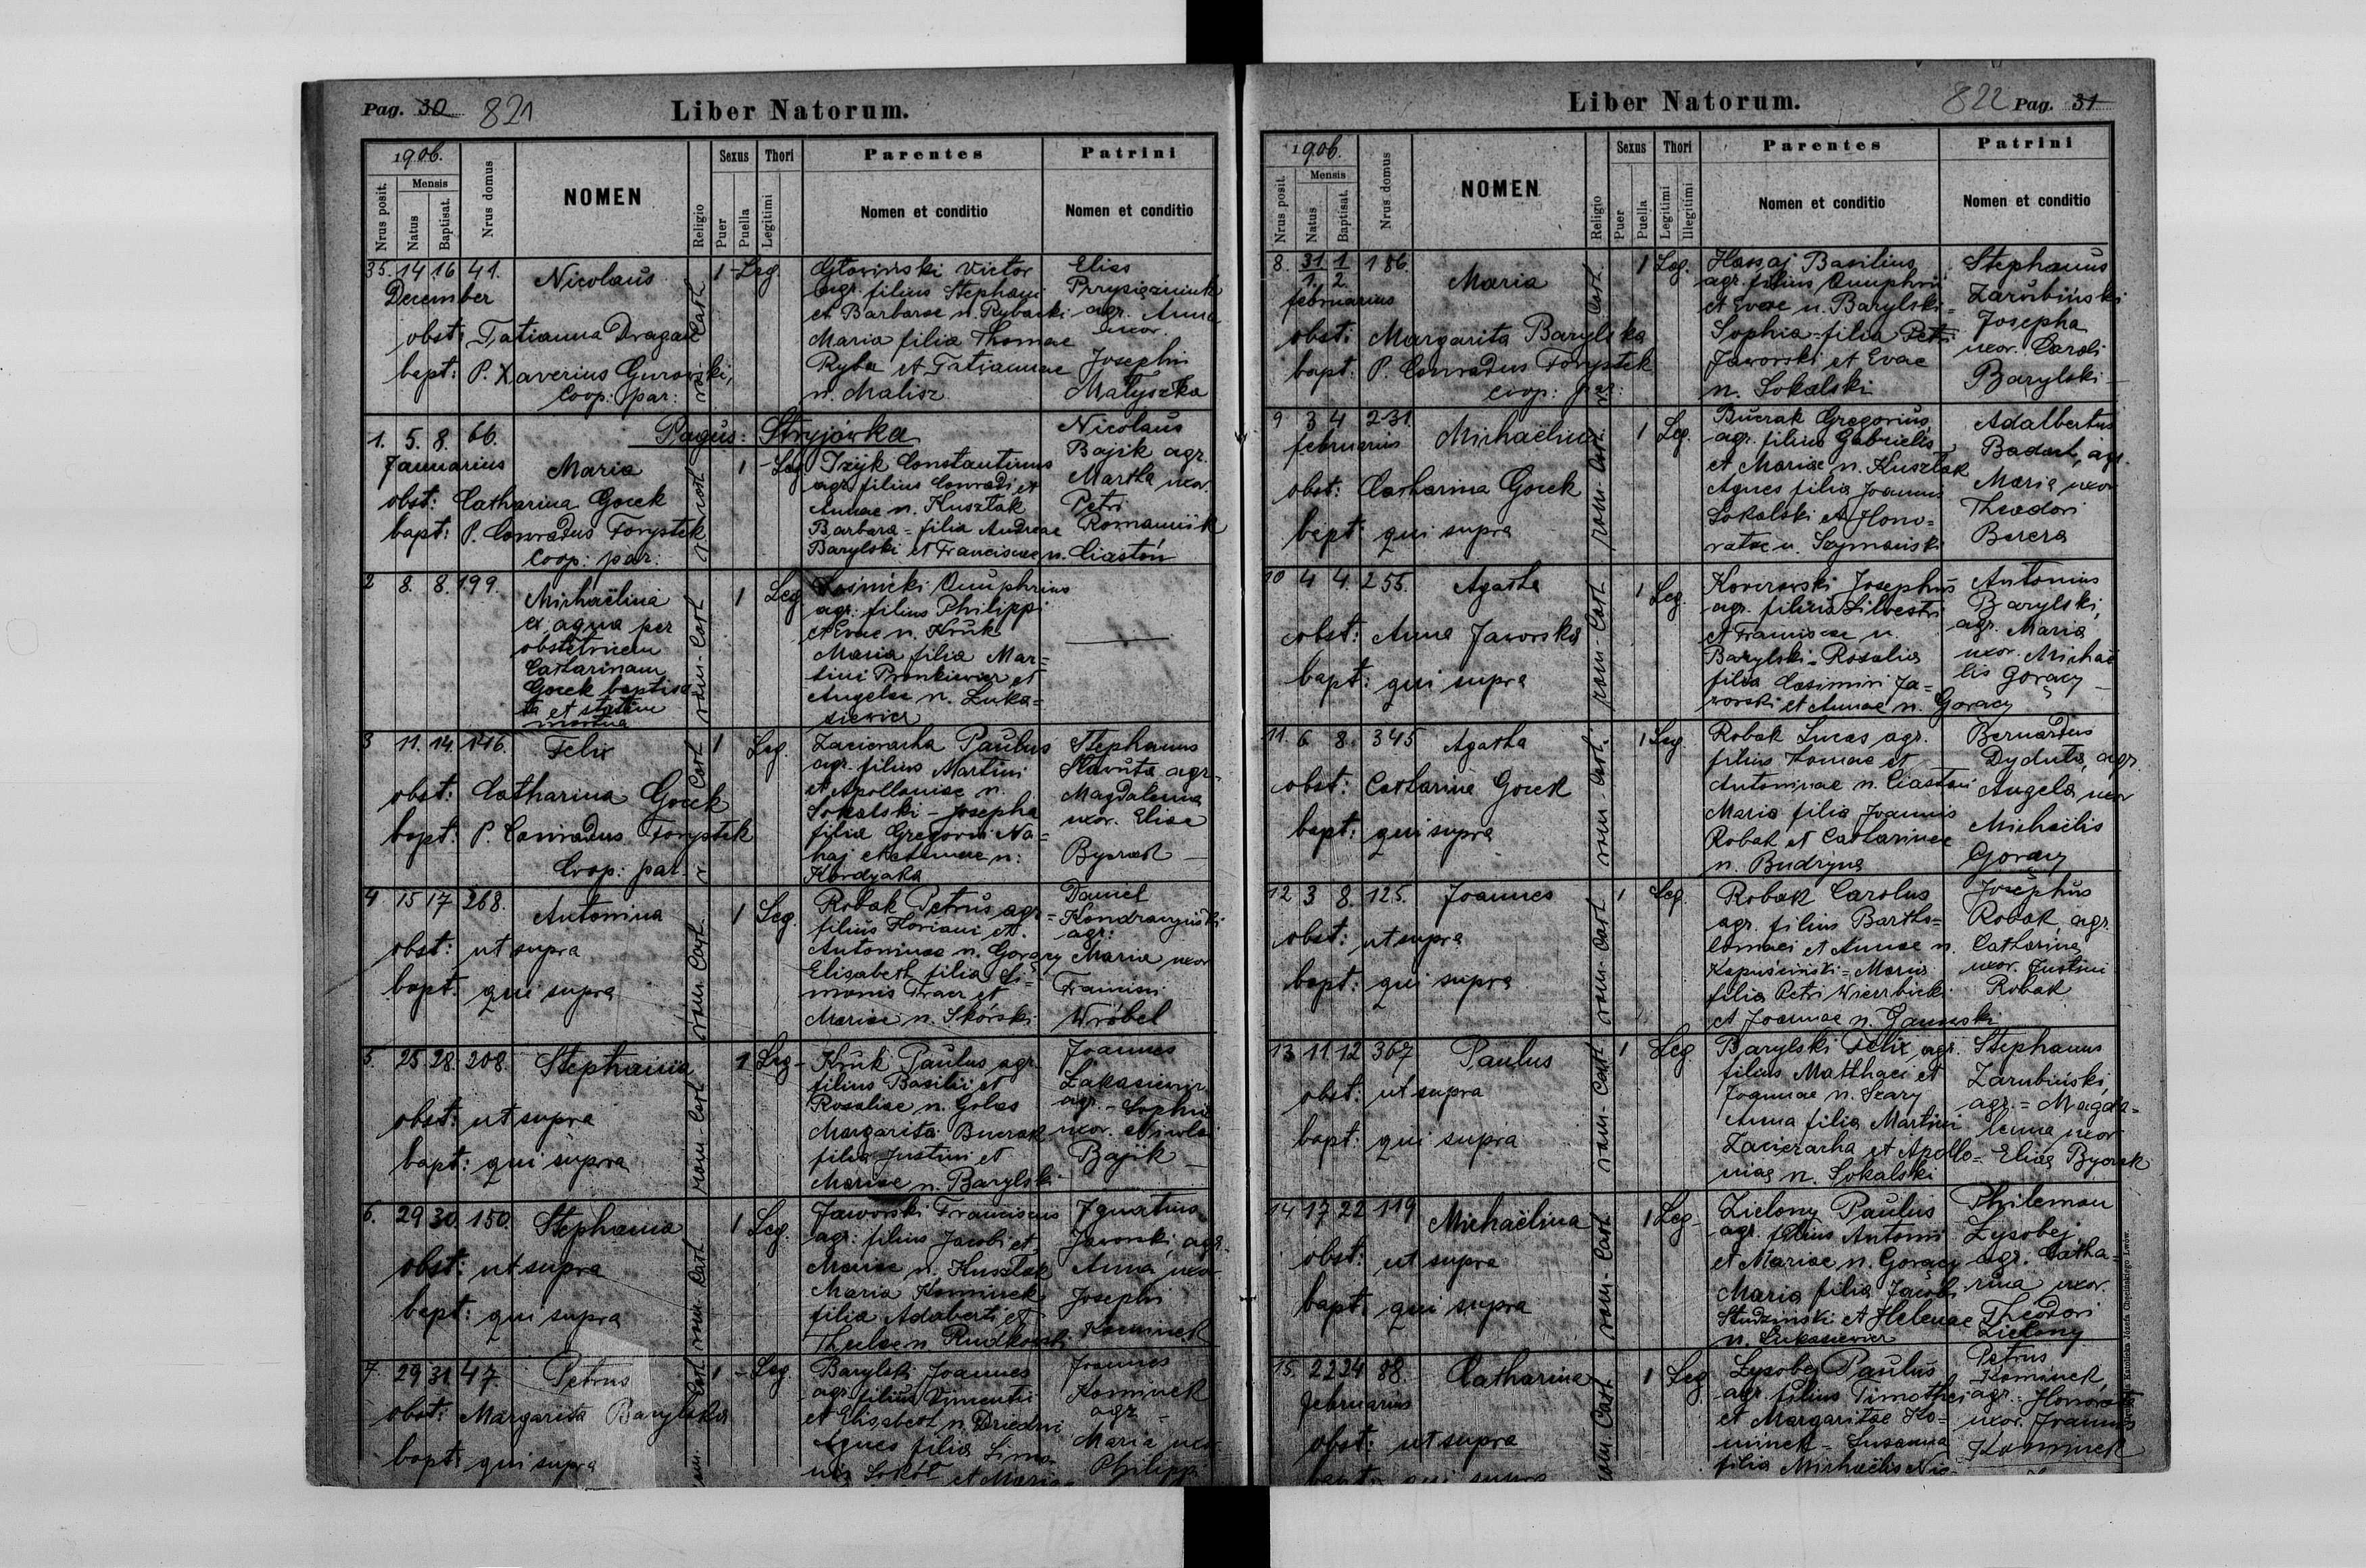 Pag. 30 821
Liber Natorum.
1906.
Nrus posit.
Mensis
Natus
Baptisat.
Nrus domus
NOMEN
Religio
Sexus
Puer
Puella
Thori
Legitimi
Parentes
Nomen et conditio
Patrini
Nomen et conditio
35. 14 16 41. Nicolaus 1 - Leg.
December
obst: Tatianna Dragan
bapt: P. Xaverius Gurowski,
Coop: par:
Victor
agr. filius Stephani
et Barbarae n. Rybacki
Maria filia Thomae
Ryba et Tatiannae
n. Malisz
Elias
agr. Anna
uxor.
Josephi
Matyszka
Pagus: Stryjówka
1. 5. 8. 66. Maria 1 - Leg
Januarius
obst: Catharina Gorek
bapt: P. Conradus Forystek
Coop: par:
Constantinus
agr. filius Conradi et
Annae n. Kusztak
Barbara = filia Andreae
Barylski et Franciscae n. Ciastoń
Nicolaus
Bajik agr.
Martha uxor.
Petri
Romaniuk
2 8. 8. 199. Michaëlina 1 Leg
ex aqua per
obstetricem
Catharinam
Gorek baptisa
ta et statim
mortua
Onuphrius
agr. filius Philippi
et Evae n. Kruk
Maria filia Mar=
tini Pronkiewicz et
Angelae n. Łuka=
siewicz
3 11. 14. 146. Felix 1 Leg.
obst: Catharina Gorek
bapt: P. Conradus Forystek
Coop: par.
Paulus
agr. filius Martini
et Apolloniae n.
Sokalski - Josepha
filia Gregorii Na=
haj et Annae n:
Kordyaka
Stephanus
agr.
Magdalenna
uxor. Eliae
4 15 17 268. Antonina 1 Leg.
obst: ut supra
bapt: qui supra
Robak Petrus agr =
filius Floriani et
Antoninae n. Gorący
Elisabeth filia Si=
monis Tracz et
Mariae n. Skórski
Daniel
agr:
Maria uxor
Francisci
Wróbel
5. 25 28. 208. Stephania 1 Leg -
obst: ut supra
bapt: qui supra
Kruk Paulus agr.
filius Basilii et
Rosaliae n. Golas
Margarita Buczak
filia Justini et
Mariae n. Barylski
Joannes
Łukasiewicz
agr. - Sophia
uxor. Nicolai
Bajik
6. 29 30. 150. Stephania 1 Leg.
obst: ut supra
bapt: qui supra
Jaworski Franciscus
agr: filius Jacobi et
Mariae n. Kusztak
Maria Kominek
filia Adalberti et
Theclae n. Rudkowski
Ignatius
Jaworski, agr.
Anna uxor
Josephi
Kominek
7. 29 31 47. Petrus 1 - Leg.
obst: Margarita Barylska
bapt: qui supra
Barylski Joannes
agr. filius Vincentii
et Elisabeth n.
Agnes filia Simo
nis Sokół et Mariae
Joannes
Kominek
agr -
Maria uxor
Philippi
822 Pag. 31
Liber Natorum.
1906.
Nrus posit.
Mensis
Natus
Baptisat.
Nrus domus
NOMEN
Religio
Sexus
Puer
Puella
Thori
Legitimi
Illegitimi
Parentes
Nomen et conditio
Patrini
Nomen et conditio
8. 31/1. 1/2. 186. Maria 1 Leg.
februarius
obst: Margarita Barylska
bapt: P. Conradus Forystek
coop: par:
Basilius
agr. filius Onuphrii
et Evae n. Barylski =
Sophia = filia Petri
Jaworski et Evae
n. Sokalski
Stephanus
Zarubiński
Josepha
uxor. Caroli
Barylski
9 3 4 231. Michaëlius 1 Leg.
februarius
obst: Catharina Gorek
bapt: qui supra
Buczak Gregorius,
agr. filius Gabrielis
et Mariae n. Kusztak
Agnes filia Joannis
Sokalski et Hono=
ratae n. Szymański
Adalbertus
agr.
Maria uxor
Theodori
Berera
10 4 4. 255. Agatha 1 Leg.
obst: Anna Jaworska
bapt: qui supra
Josephus
agr. filius Silvestri
et Franciscae n.
Barylski - Rosalia
filia Casimiri Ja=
worski et Annae n. Gorący
Antonius
Barylski,
agr. Maria
uxor. Michaë
lis Gorący
11. 6 8. 345 Agatha 1 Leg.
obst: Catharina Gorek
bapt: qui supra
Robak Lucas agr.
filius Thomae et
Antoninae n. Ciastoń
Maria filia Joannis
Robak et Catharinae
n. Budzyna
Bernardus
Dyduła, agr.
Angela uxor
Michaëlis
Gorący
12 3 8. 125. Joannes 1 Leg.
obst: ut supra
bapt: qui supra
Robak Carolus
agr. filius Bartho=
lomaei et Annae n.
Kapuściński = Maria
filia Petri Wierzbicki
et Joannae n.
Josephus
Robak, agr.
Catharina
uxor. Justini
Robak
13 11 12 367 Paulus 1 Leg
obst: ut supra
bapt: qui supra
Barylski Felix, agr.
filius Matthaei et
Joannae n. Szary
Anna filia Martini
et Apollo=
niae n. Sokalski
Stephanus
Zarubiński,
agr. = Magda=
lenna uxor
Eliae
14 17 22 119 Michaëlina 1 Leg -
obst: ut supra
bapt: qui supra
Zielony Paulus
agr. filius Antonii
et Mariae n. Gorący
Maria filia Jacobi
Studzinski et Helenae
n. Łukasiewicz
Philemon
Łysobej
agr. Catha=
rina uxor.
Theodori
Zielony
15. 22 24 88. Catharina 1 Leg
februarius
obst: ut supra
bapt: qui supra
Łysobej Paulus
agr. filius Timothei
et Margaritae Ko=
minek = Susanna
filia Michaëlis
Petrus
Kominek,
agr. Honorata
uxor. Joannis
Kominek